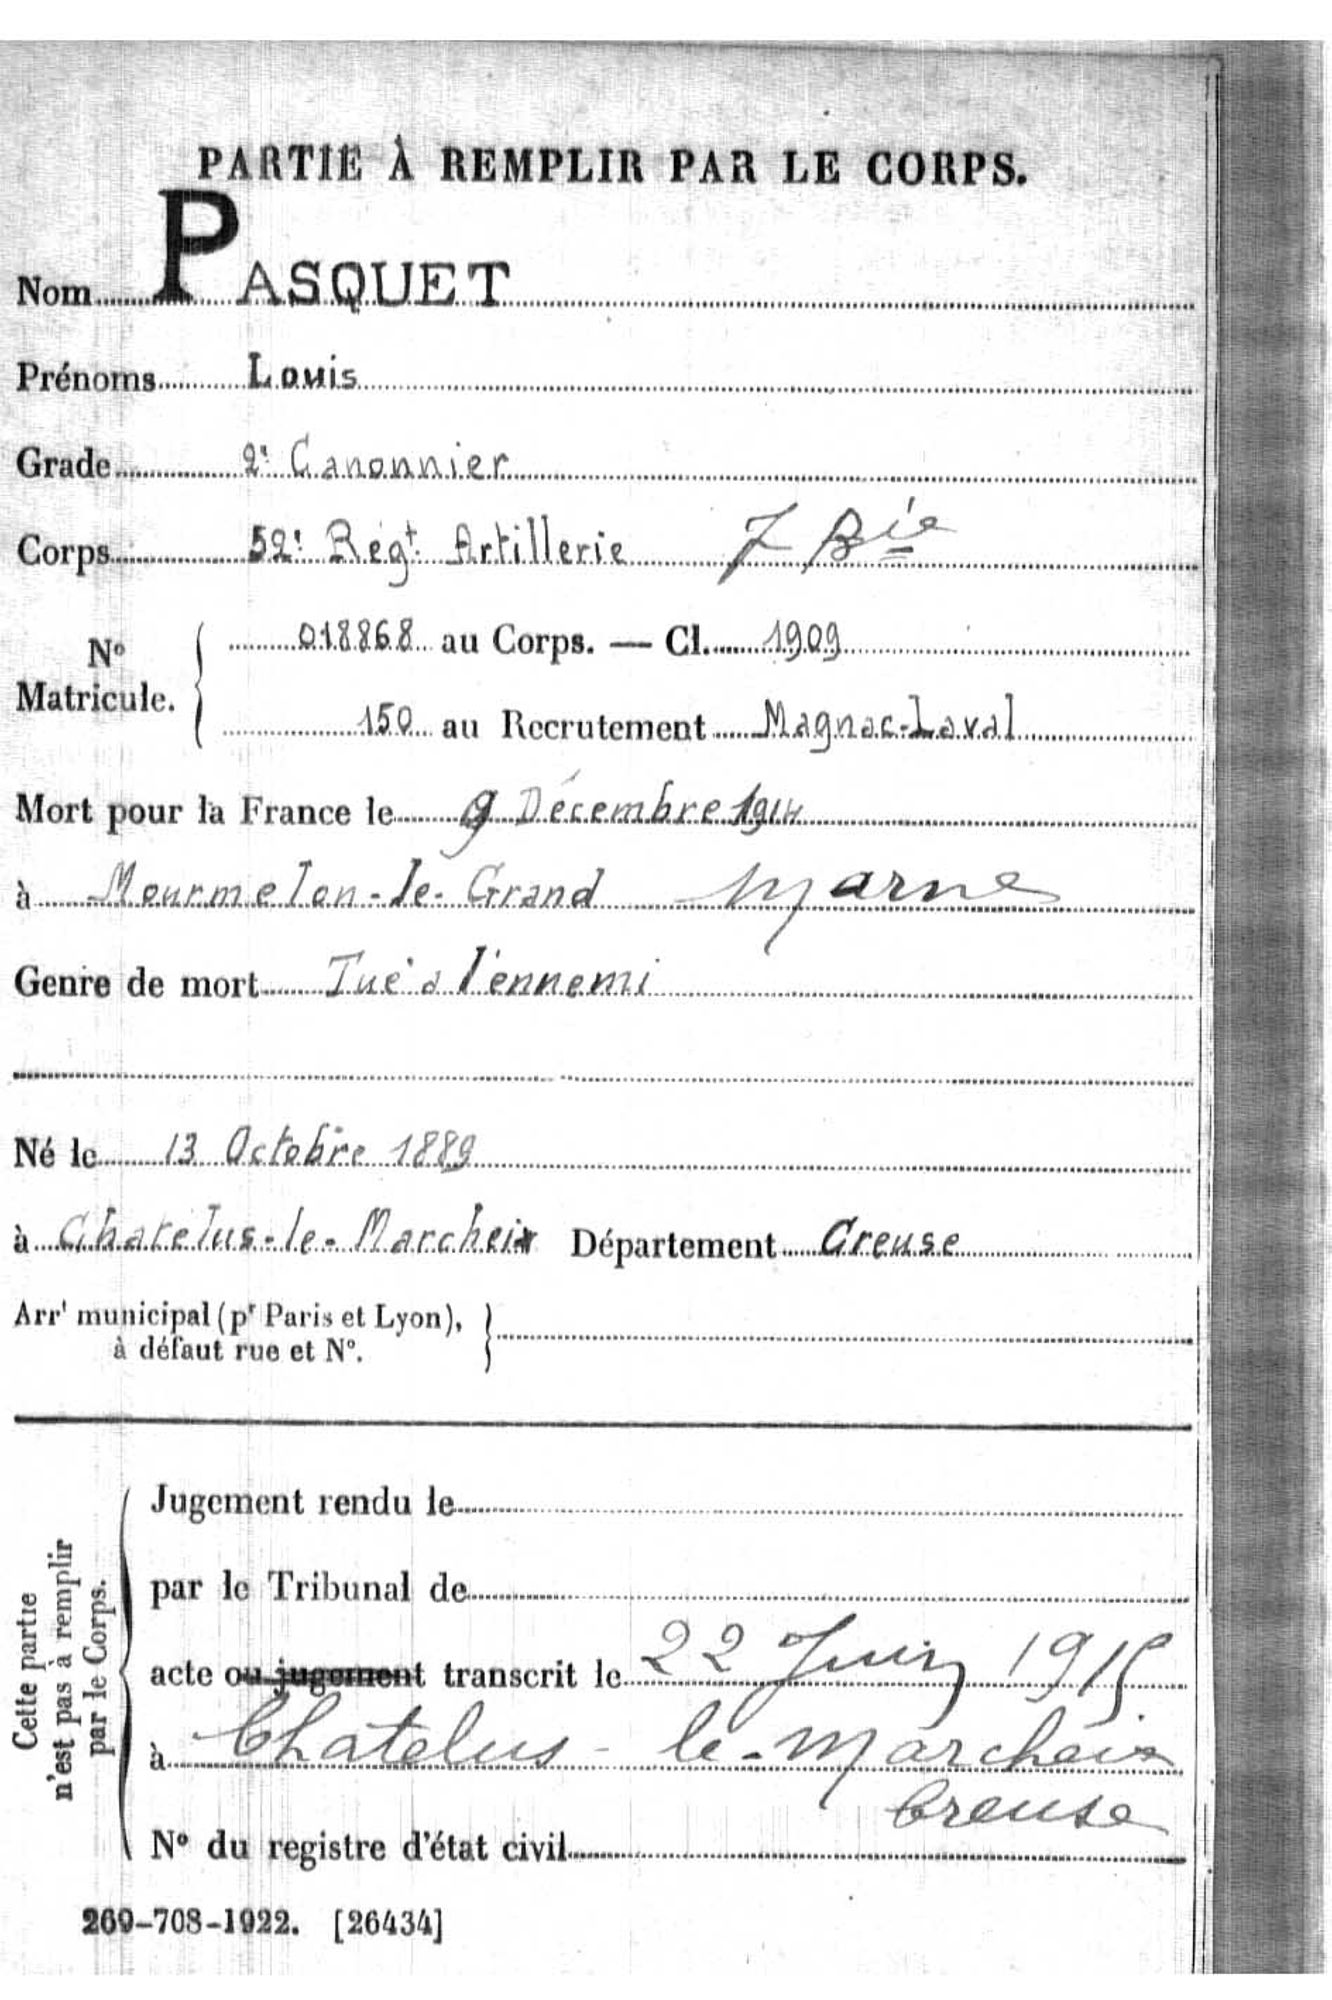 PARTIE À REMPLIR PAR LE CORPS.
Nom PASQUET
Prénoms Louis
Grade 2e Canonnier
Corps 52e Régt Artillerie 7 Bie
No Matricule. { 018868 au Corps. — Cl. 1909
150 au Recrutement Magnac-Laval
Mort pour la France le 9 Décembre 1914
à Mourmelon-le-Grand Marne
Genre de mort Tué à l'ennemi
Né le 13 Octobre 1889
à Chatelus-le-Marcheix Département Creuse
Arrt municipal (pr Paris et Lyon), }
à défaut rue et No.
Cette partie
n'est pas à remplir
par le Corps.
Jugement rendu le
par le Tribunal de
acte ou jugement transcrit le 22 Juin 1915
à Chatelus-le-Marcheix
Creuse
No du registre d'état civil
269-708-1922. [26434]